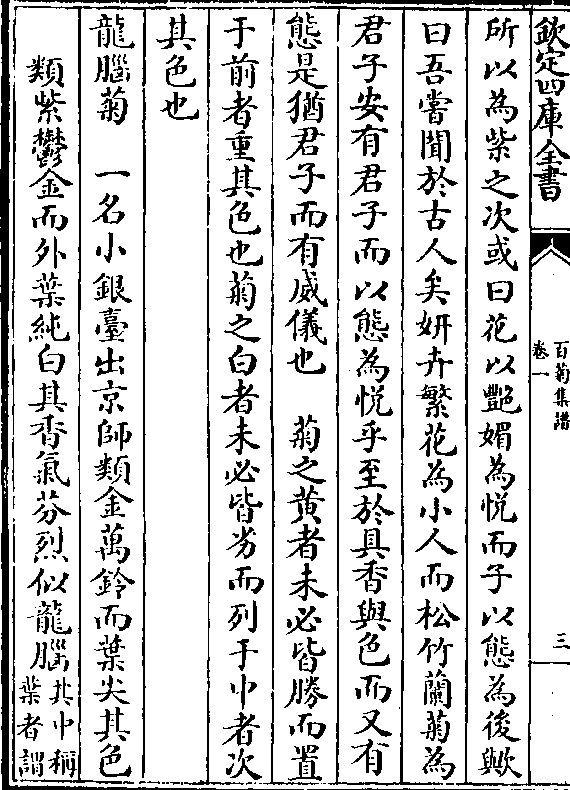 欽定四庫全書
百菊集譜
卷一
三
所以為紫之次或曰花以艷媚為悅而子以態為後歟
曰吾嘗聞於古人矣妍卉繁花為小人而松竹蘭菊為
君子安有君子而以態為悅乎至於具香與色而又有
態是猶君子而有威儀也　菊之黄者未必皆勝而置
于前者重其色也菊之白者未必皆劣而列于中者次
其色也
龍腦菊　一名小銀臺出京師類金萬鈴而葉尖其色
類紫鬱金而外葉純白其香氣芬烈似龍腦
其中稱
葉者謂